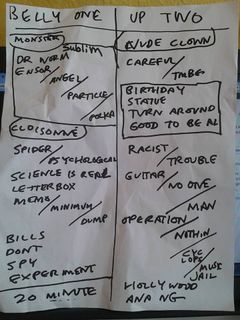 BELLY ONE
MONSTER
SUBLIM
DR WORM
ENSOR
ANGEL
PARTICLE
POLKA
CLOISONNÉ
SPIDER
PSYCHOLOGICAL
SCIENCE IS REAL
LETTERBOX
MEMO
MINIMUM
DUMP
BILLS
DONT
SPY
EXPERIMENT
20 MINUTE
UP TWO
RUDE CLOWN
CAREFUL
TUBES
BIRTHDAY
STATUE
TURN AROUND
GOOD TO BE AL
RACIST
TROUBLE
GUITAR
NO ONE
MAN
OPERATION
NOTHIN
CYC
LOPS
MUSIC
JAIL
HOLLYWOOD
ANA NG